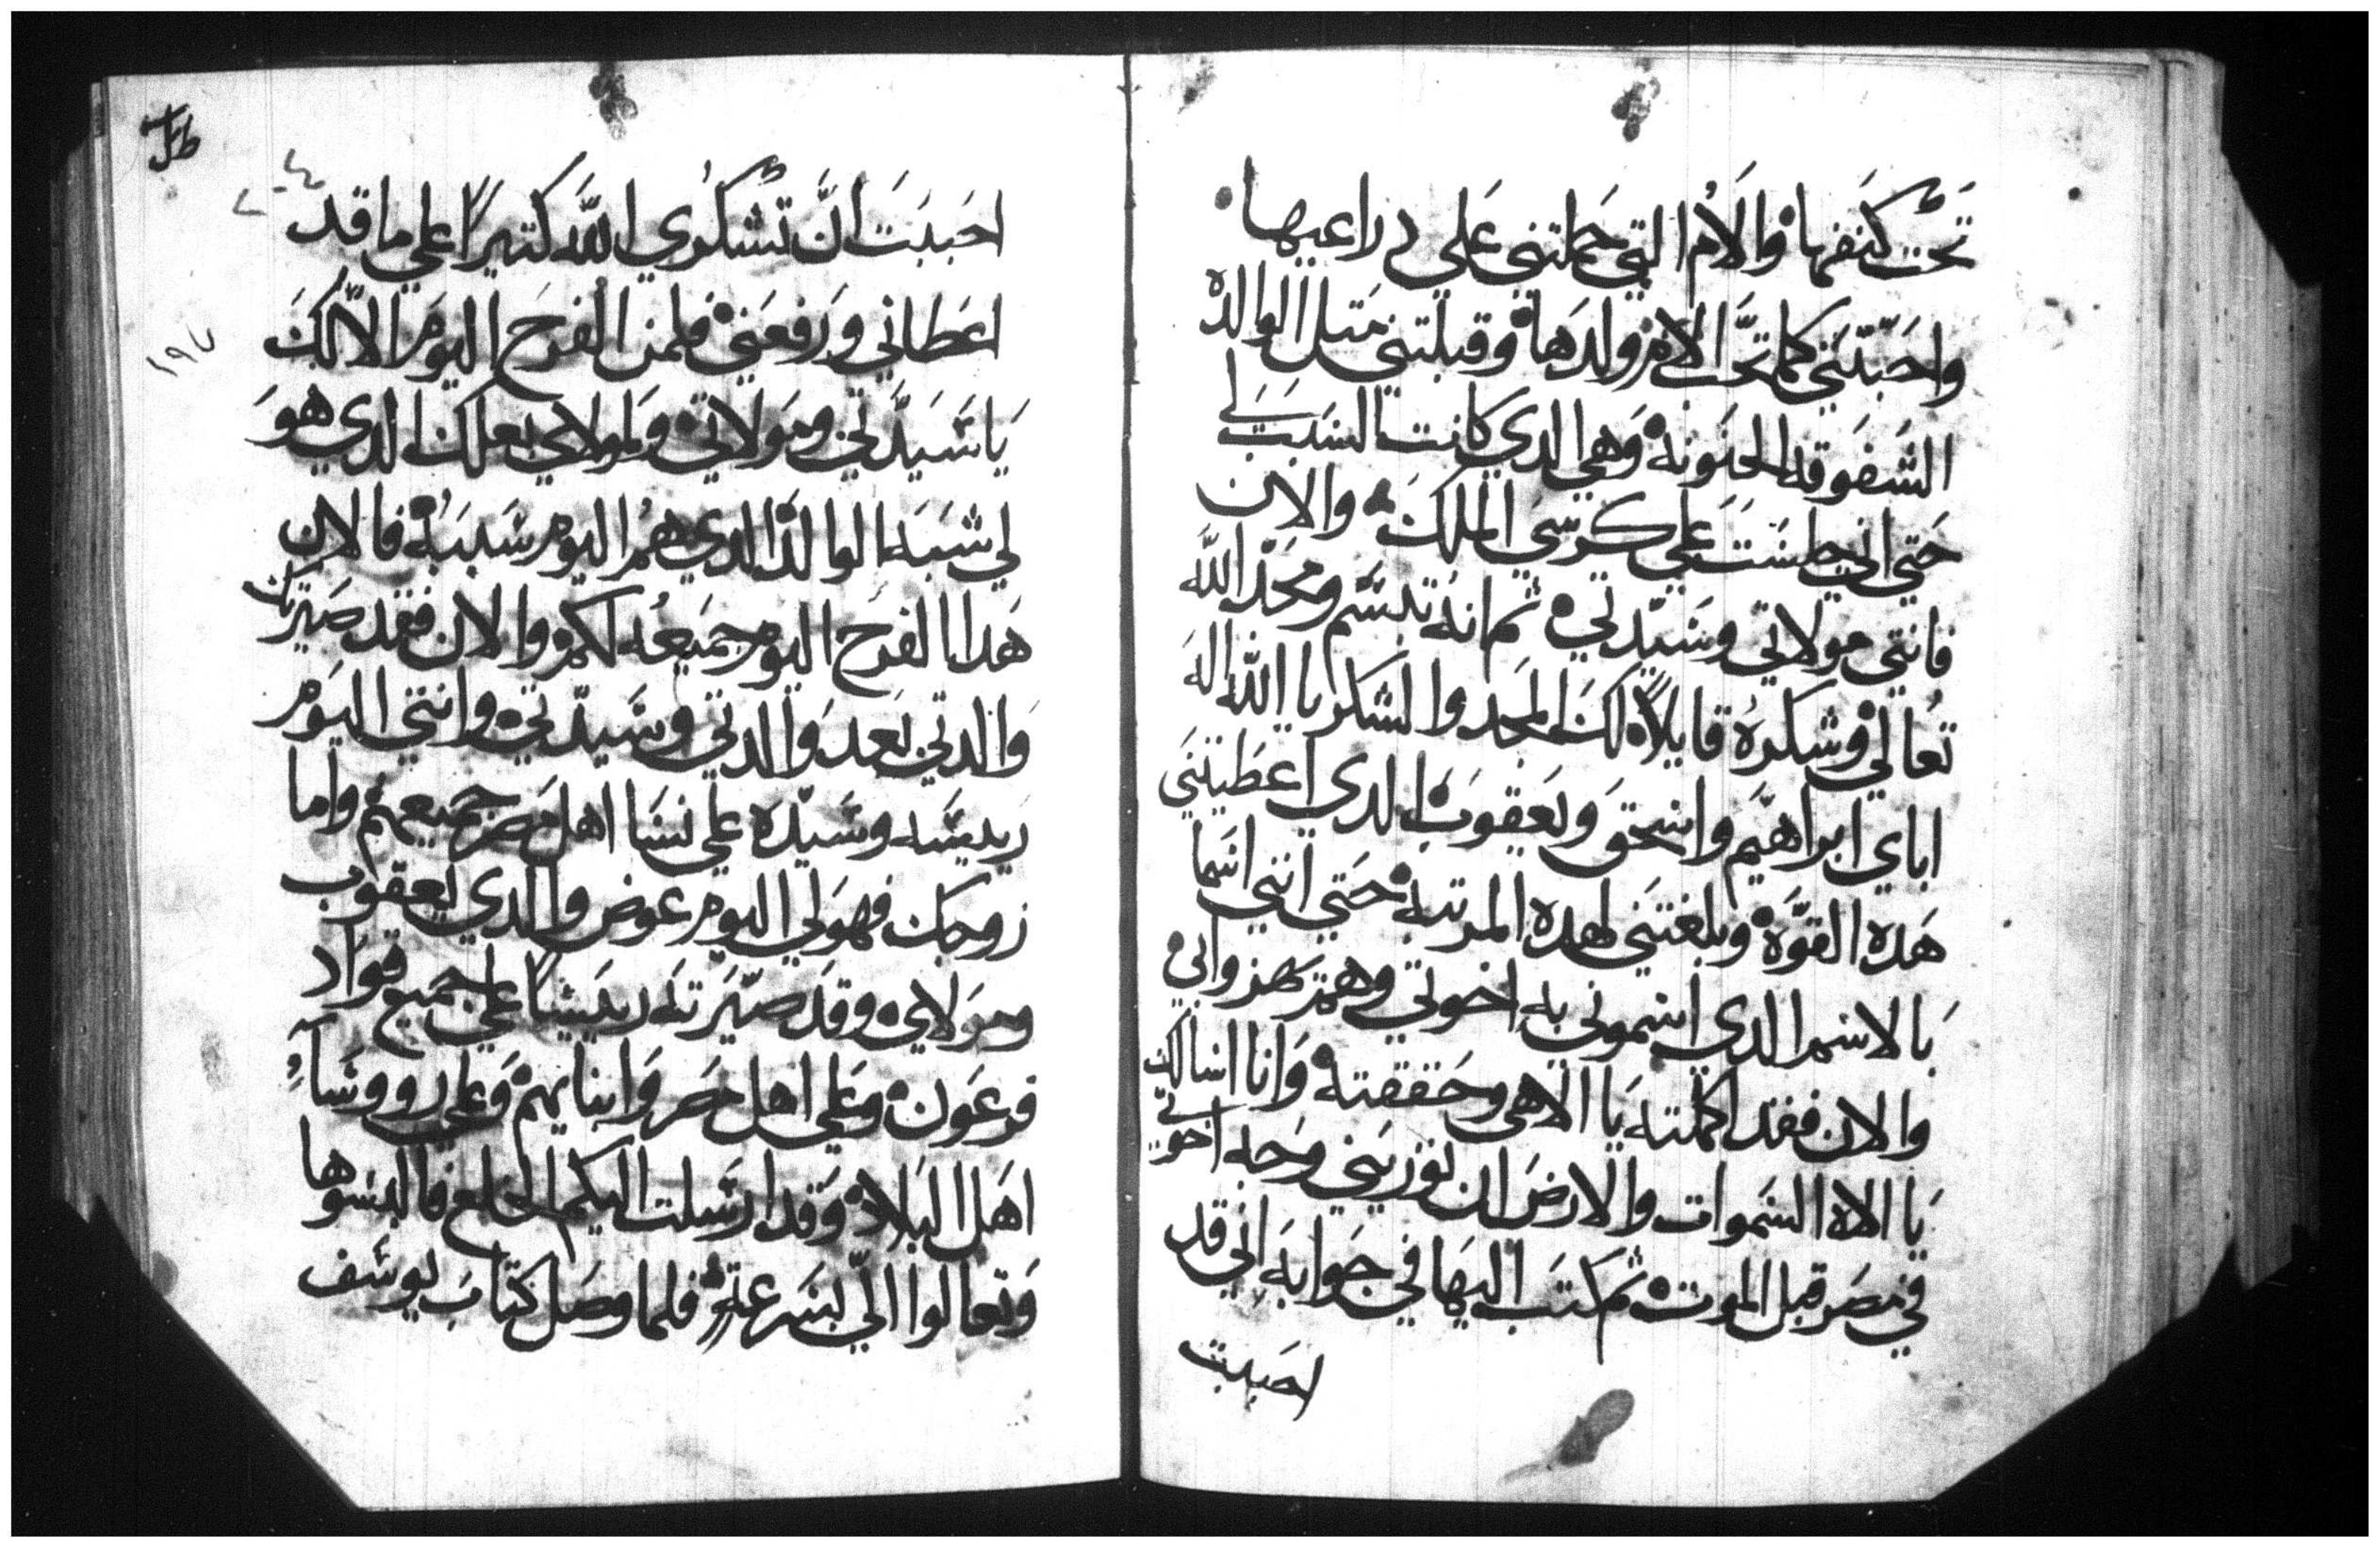 تحت كنفها والام التي حملتني علي دراعيها
واحبتني كما تحب الام ولدها وقبلتني متل الوالده
الشفوقه الحنونه وهي الدي كانت السبب لي
حتي اني جلست علي كرسي الملك والان
فانتي مولاتي وسيدتي ثم انه تبسم ومجد الله
تعالي وشكره قايلا لك المجد والشكر يا الله اله
اباي ابراهيم واسحق ويعقوب الدي اعطيتني
هده القوه وبلغتني لهده المرتبه حتي انني اتسما
بالاسم الدي اسموني به اخوتي وهم وابي
والان فقد اكملته يا الاهي وحققته وانا اسالك
يا الاه السموات والارض ان توريني وجه اخوتي
في مصر قبل الموت ثم كتب اليها في جوابه اني قد
احببت
احببت ان تشكري الله كتيرا علي ما قد
اعطاني ورفعني فلمن الفرح اليوم الا لك
يا سيدتي ومولاتي ولمولاي بعلك الدي هو
لي شبه الوالد الدي هم اليوم سببه فالان
هدا الفرح اليوم جميعه لكم والان فقد صيرتك
والدتي بعد والدتي وسيدتي وانتي اليوم
رييسه وسيده علي نسا اهل مصر جميعهم واما
زوجك فهو لي اليوم عوض والدي يعقوب
ومولاي وقد صيرته رييسا علي جميع قواد
فرعون وعلي اهل مصر وابنايهم وعلي رووسآء
اهل البلاد وقد ارسلت اليكم الخلع فالبسوها
وتعالوا الي بسرعة فلما وصل كتاب يوسف
١٩٧